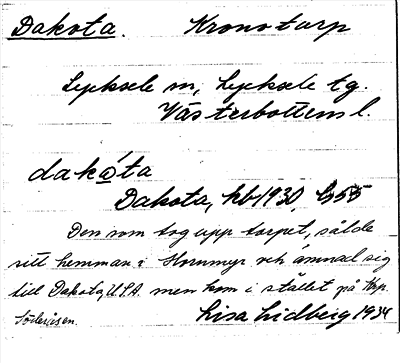 Dakota. Kronotorp
Lycksele sn, Lycksele tg.
Västerbottens l.
dakåta
Dakota, kb 1930,
Den som tog upp torpet, sålde
sitt hemman i Hornmyr och ämnad sig
till Dakota, U.S.A. men kom i stället på
Lisa Lidberg 1934